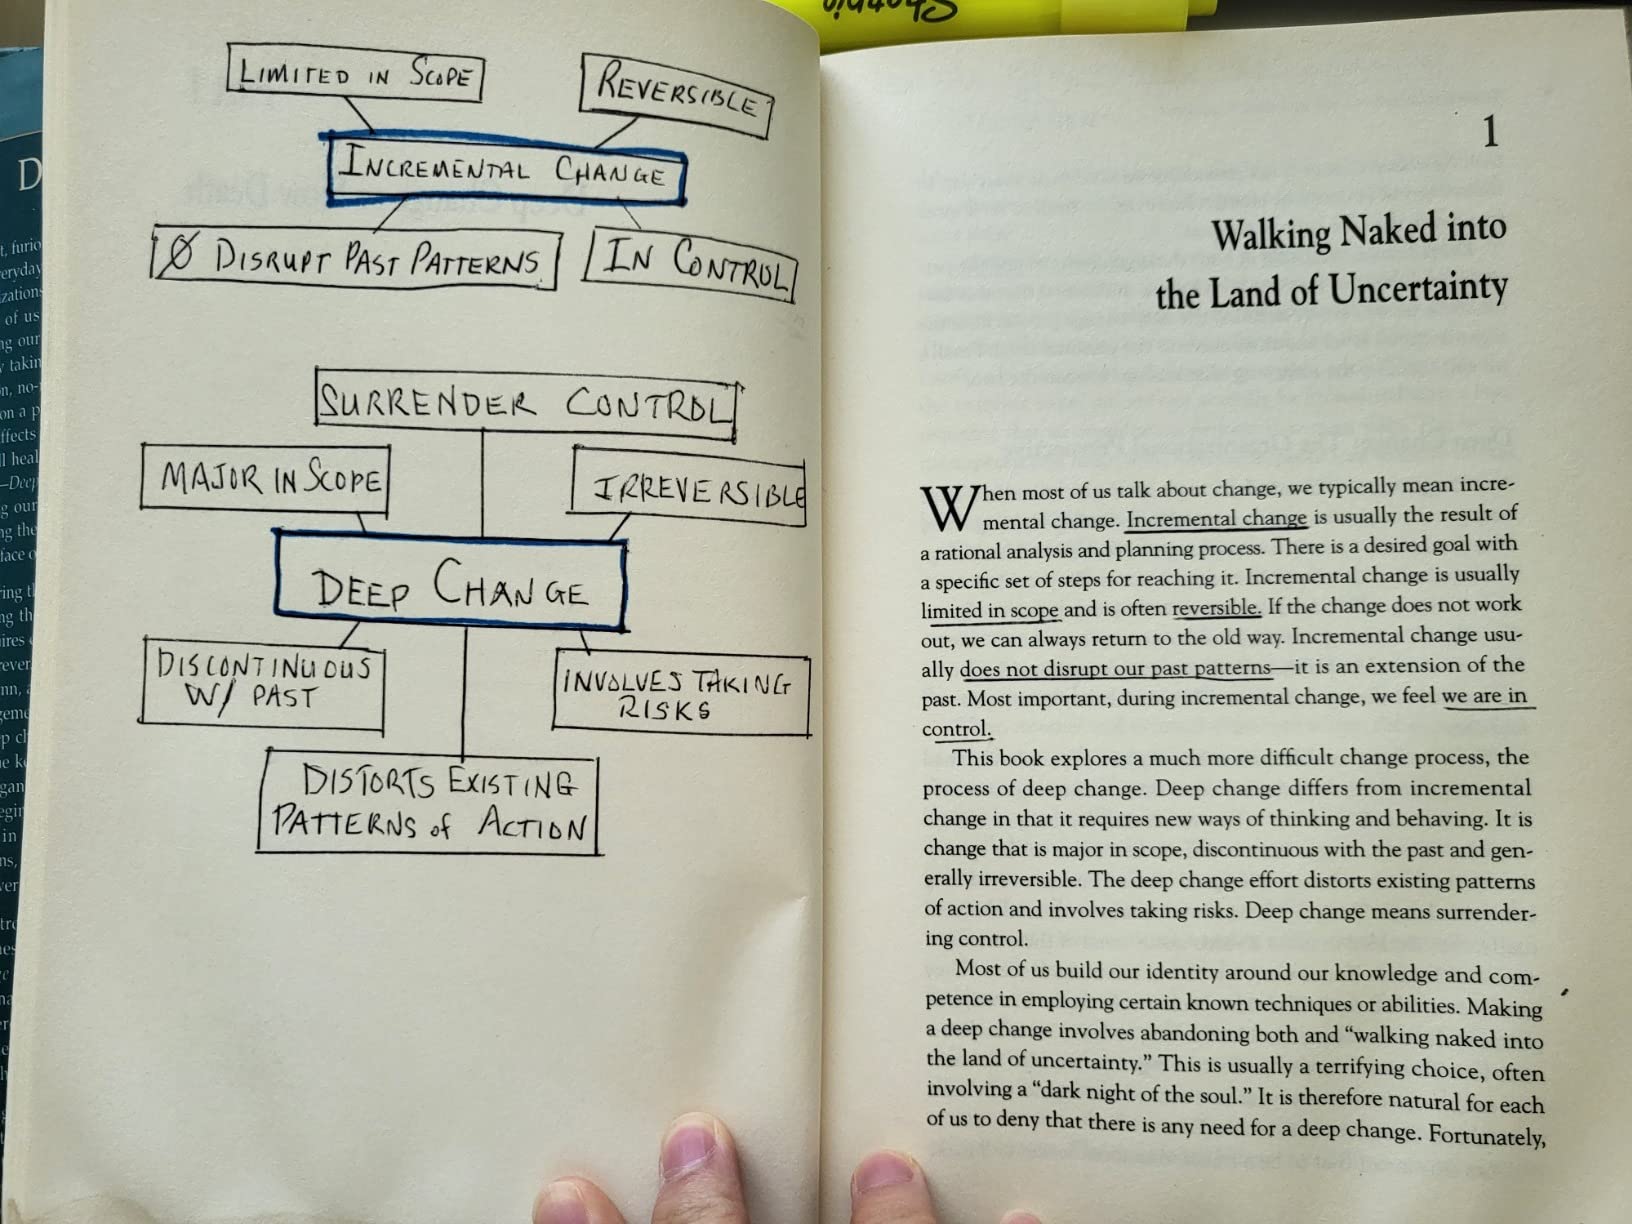 Sharpie
D
t, furio
eryday
zations
of us
ng our
y takin
n, no-
on a p
ffects
ll heal
—Deep
g our
ng the
face o
LIMITED IN SCOPE
REVERSIBLE
INCREMENTAL CHANGE
Ø DISRUPT PAST PATTERNS
IN CONTROL
SURRENDER CONTROL
MAJOR IN SCOPE
IRREVERSIBLE
DEEP CHANGE
DISCONTINUOUS
W/ PAST
INVOLVES TAKING
RISKS
DISTORTS EXISTING
PATTERNS of ACTION
1
Walking Naked into
the Land of Uncertainty
When most of us talk about change, we typically mean incre-
mental change. Incremental change is usually the result of
a rational analysis and planning process. There is a desired goal with
a specific set of steps for reaching it. Incremental change is usually
limited in scope and is often reversible. If the change does not work
out, we can always return to the old way. Incremental change usu-
ally does not disrupt our past patterns—it is an extension of the
past. Most important, during incremental change, we feel we are in
control.
This book explores a much more difficult change process, the
process of deep change. Deep change differs from incremental
change in that it requires new ways of thinking and behaving. It is
change that is major in scope, discontinuous with the past and gen-
erally irreversible. The deep change effort distorts existing patterns
of action and involves taking risks. Deep change means surrender-
ing control.
Most of us build our identity around our knowledge and com-
petence in employing certain known techniques or abilities. Making
a deep change involves abandoning both and “walking naked into
the land of uncertainty.” This is usually a terrifying choice, often
involving a “dark night of the soul.” It is therefore natural for each
of us to deny that there is any need for a deep change. Fortunately,